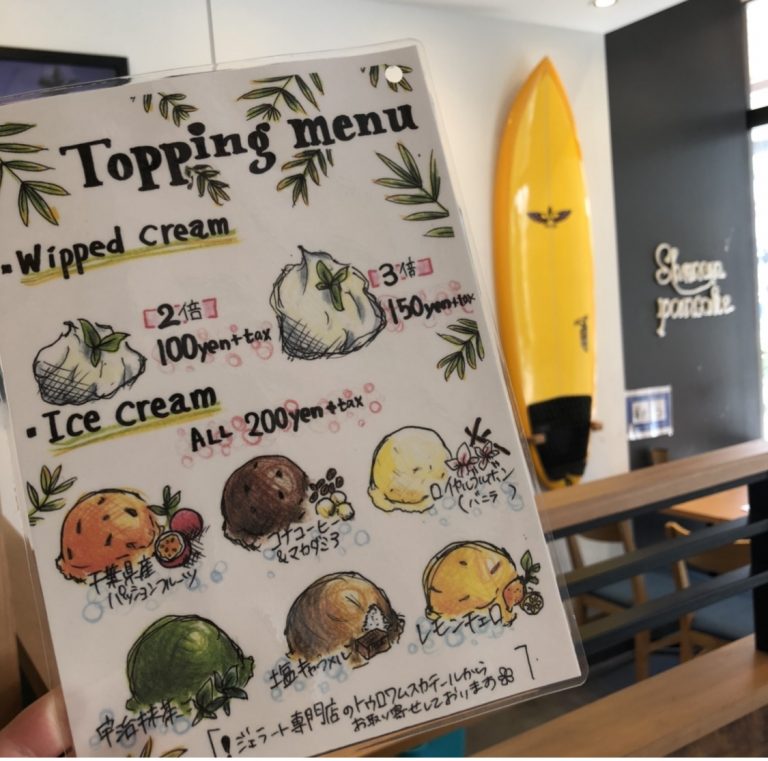 Topping menu
Wipped Cream
2倍
100yen+tax
3倍
150yen+tax
Ice Cream
ALL 200yen+tax
千葉県産
パッションフルーツ
コナコーヒー
&マカダミア
ロイヤルブルボン
(バニラ)
宇治抹茶
塩キャラメル
レモンチェロ
「!ジェラート専門店のトゥロワムスカテールから
お取り寄せしております
pancake